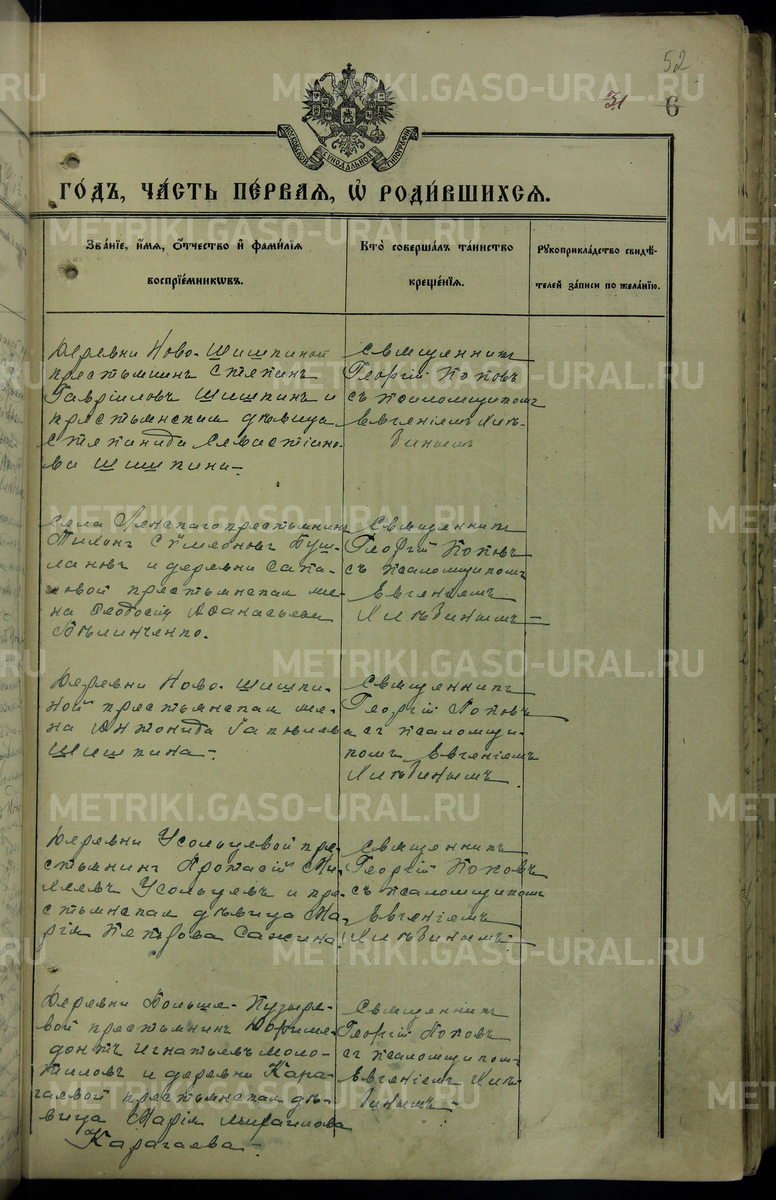 52
31 6
МОСКОВСКОЙ СѴНОДАЛЬНОЙ ТИПОГРАФІИ
ГОДЪ, ЧАСТЬ ПЕРВАЯ, Ѡ РОДИВШИХСЯ.
Званіе, имя, отчество и фамилія
воспріемниковъ.
Кто совершалъ таинство
крещенія.
Рукоприкладство свидѣ-
телей записи по желанію.
Деревни Ново-Шишкиной
крестьянинъ Степанъ
Гавріиловъ Шишкинъ и
крестьянская дѣвица
Степанида Севастіано-
ва Шишкина.
Священникъ
Георгій Поповъ
съ псаломщикомъ
Евгеніемъ
Села крестьянинъ
Тихонъ Сѵмеоновъ
и деревни
крестьянская же-
на Ѳеодосія Аѳанасьева
Священникъ
Георгій Поповъ
съ псаломщикомъ
Евгеніемъ
Деревни Ново-Шишки-
ной крестьянская же-
на Антонида Іаковлева
Шишкина.
Священникъ
Георгій Поповъ
съ псаломщи-
комъ Евгеніемъ
Деревни Усольцевой кре-
стьянинъ Протасій
Усольцевъ и кре-
стьянская дѣвица Ма-
рія Петрова Сажина
Священникъ
Георгій Поповъ
съ псаломщикомъ
Евгеніемъ
Деревни Больше-Пузыре-
вой крестьянинъ
Игнатьевъ Моло-
тиловъ и деревни Кара-
гаевой крестьянская дѣ-
вица Марія Михаилова
Карагаева.
Священникъ
Георгій Поповъ
съ псаломщикомъ
Евгеніемъ
METRIKI.GASO-URAL.RU